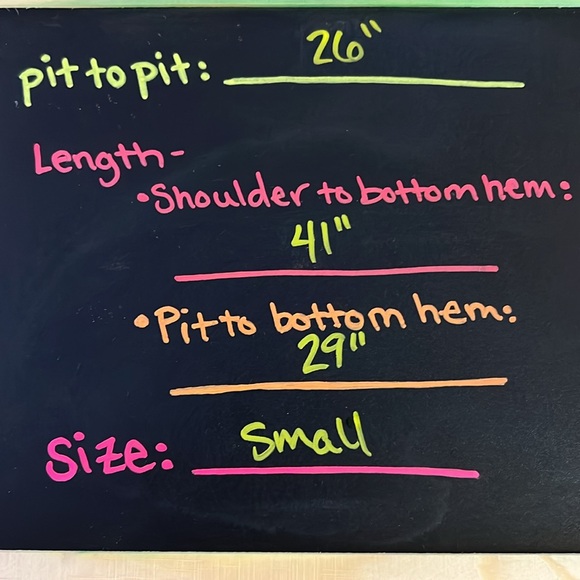 pit to pit: 26"
Length-
•Shoulder to bottom hem:
41"
•Pit to bottom hem:
29"
Size: Small